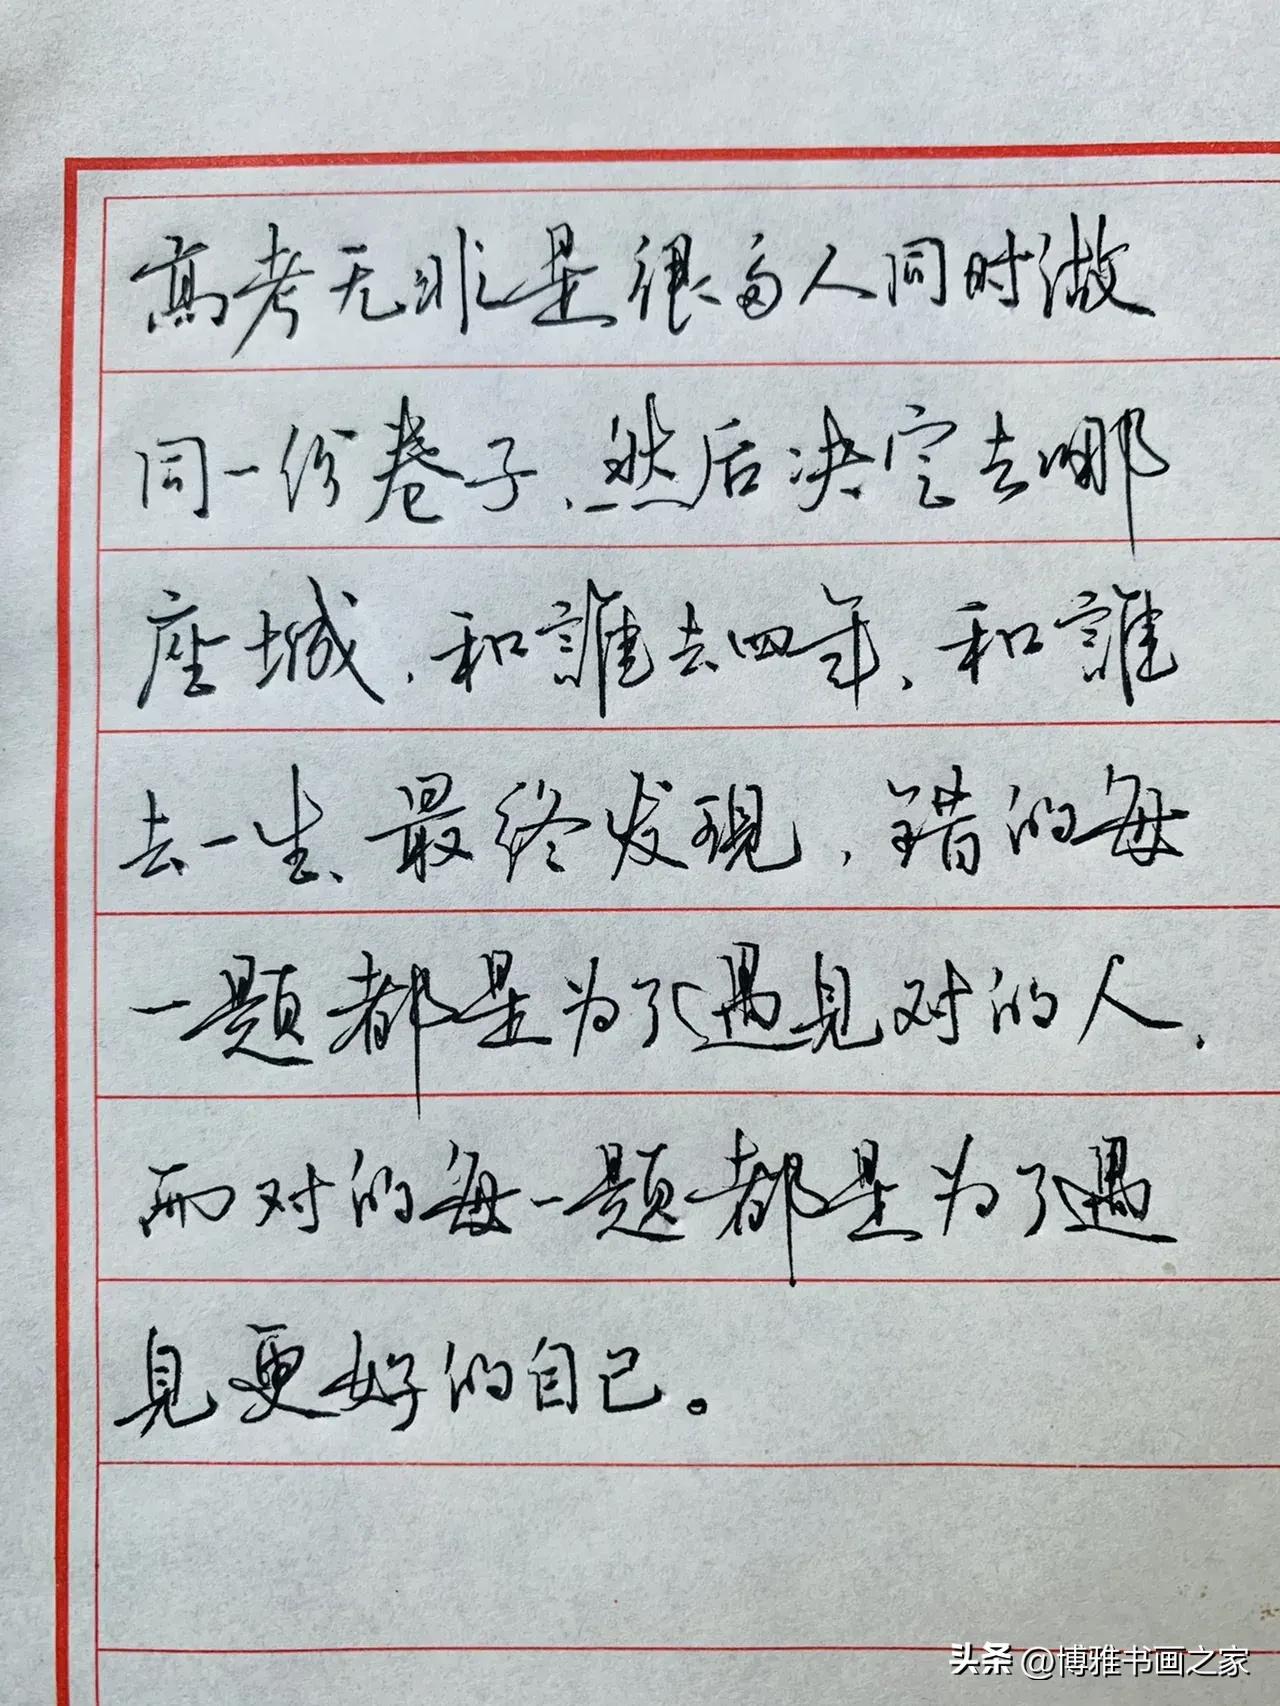 高考无非是很多人同时做
同一份卷子、然后决定去哪
座城、和誰去四年、和誰
去一生、最终发现，错的每
一题都是为了遇见对的人、
而对的每一题都是为了遇
见更好的自己。
头条 @博雅书画之家